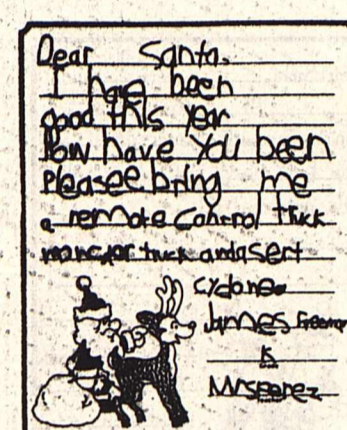 Dear Santa,
I have been
good this year
How have you been
Pleasee bring me
a remote control truck
moncter truck and a sert
cyclone
James Freeman
K
Mrs Perez